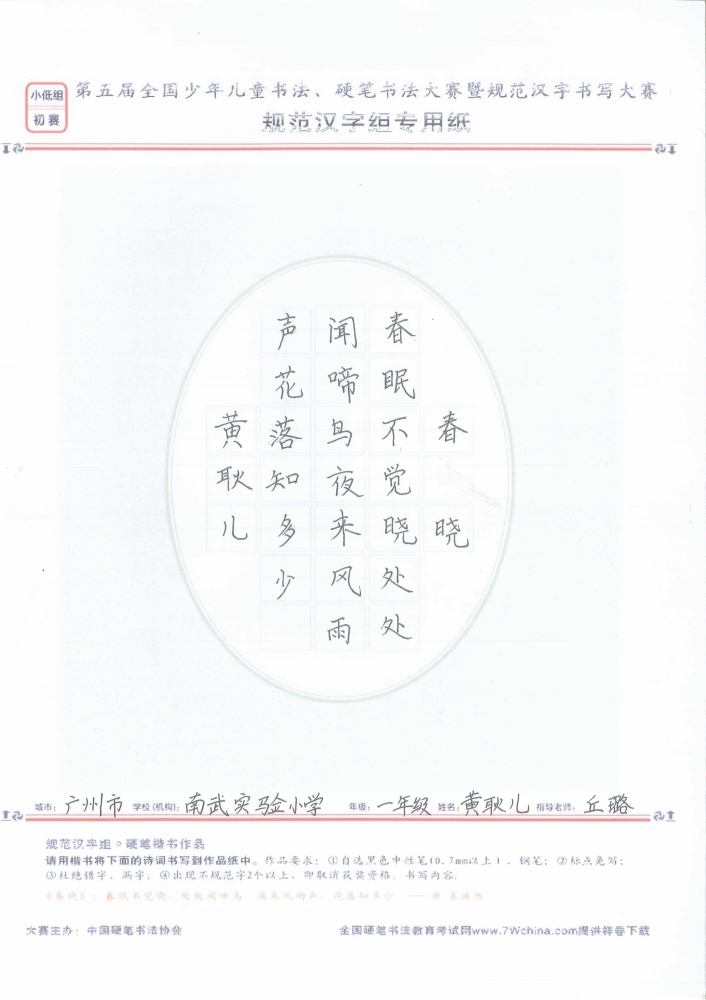 小低组
初赛
第五届全国少年儿童书法、硬笔书法大赛暨规范汉字书写大赛
规范汉字组专用纸
春晓
春眠不觉晓处处
闻啼鸟夜来风雨
声花落知多少
黄耿儿
城市：广州市 学校(机构)：南武实验小学 年级：一年级 姓名：黄耿儿 指导老师：丘璐
规范汉字组。硬笔楷书作品
请用楷书将下面的诗词书写到作品纸中。作品要求：①自选黑色中性笔(0.7mm以上)、钢笔；②标点免写；
③杜绝错字、漏字；④出现不规范字2个以上，即取消获奖资格。书写内容：
《春晓》：春眠不觉晓，处处闻啼鸟。夜来风雨声，花落知多少
大赛主办：中国硬笔书法协会
全国硬笔书法教育考试网www.7Wchina.com提供样卷下载